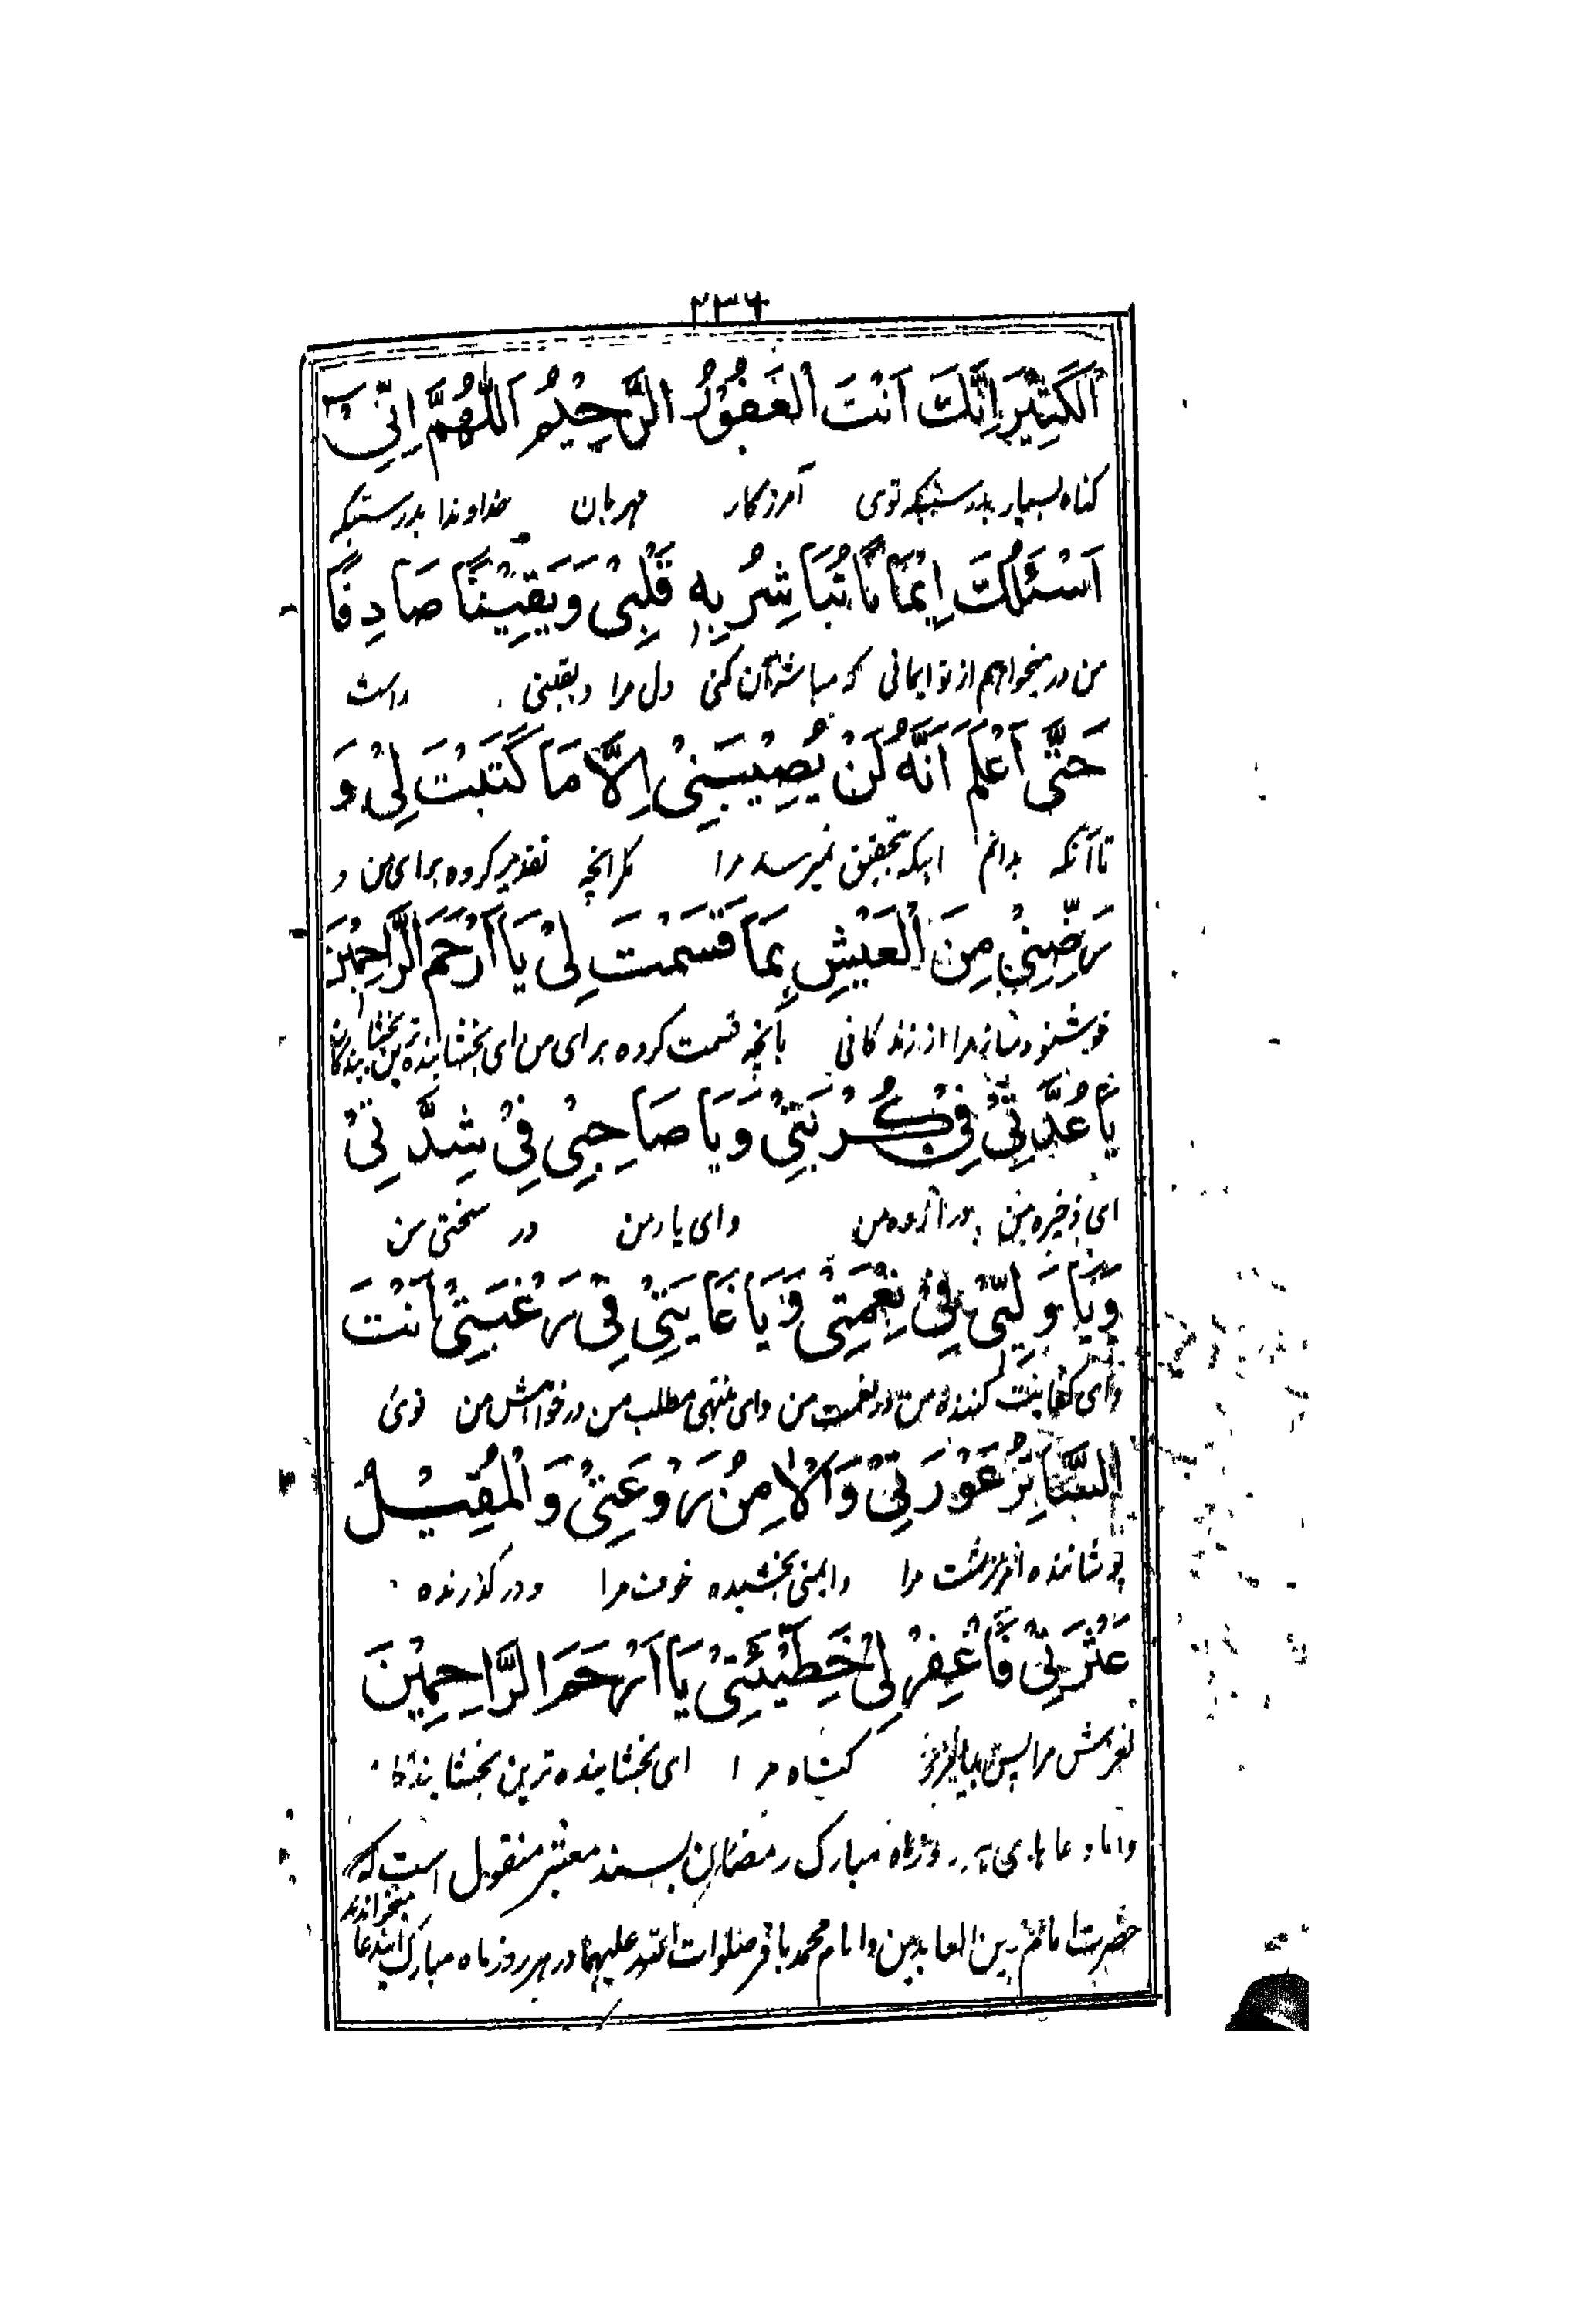 ۲۳۶
اَلْكَثِيْرَ اِنَّكَ اَنْتَ الْغَفُوْرُ الرَّحِيْمُ اَللّٰهُمَّ اِنِّيْ
کناه بسیار بدرستیکه توی آمرزکار مهربان خداوندا بدرستیکه
اَسْئَلُكَ اِيْمَانًا تُبَاشِرُ بِهٖ قَلْبِيْ وَيَقِيْنًا صَادِقًا
من درمیخواهم از تو ایمانی که مباشر آن کنی دل مرا و یقینی راست
حَتّٰى اَعْلَمَ اَنَّهُ لَنْ يُصِيْبَنِيْ اِلَّا مَا كَتَبْتَ لِيْ وَ
تا آنکه بدانم اینکه بتحقیق نمیرسد مرا مکر انچه تقدیر کرده برای من و
رَضِّنِيْ مِنَ الْعَيْشِ بِمَا قَسَمْتَ لِيْ يَا اَرْحَمَ الرَّاحِمِيْنَ
خوشنود ساز مرا از زندکانی بآنچه قسمت کرده برای من ای بخشاینده ترین بخشایندکان
يَا عُدَّتِيْ فِيْ كُرْبَتِيْ وَيَا صَاحِبِيْ فِيْ شِدَّتِيْ
ای ذخیره من در اندوه من و ای یار من در سختی من
وَيَا وَلِيِّيْ فِيْ نِعْمَتِيْ وَيَا غَايَتِيْ فِيْ رَغْبَتِيْ اَنْتَ
و ای کفایت کننده من در نعمت من و ای منتهی مطلب من در خواهش من توئ
السَّاتِرُ عَوْرَتِيْ وَالْاٰمِنُ رَوْعَتِيْ وَالْمُقِيْلُ
پوشاننده مرا و ایمنی بخشیده خوف مرا و درکذرنده
عَثْرَتِيْ فَاغْفِرْ لِيْ خَطِيْئَتِيْ يَا اَرْحَمَ الرَّاحِمِيْنَ
لغزش مرا پس بیامرز کناه مرا ای بخشاینده ترین بخشایندکان
و اما دعاهای هر روز ماه مبارک رمضان بسند معتبر منقول است که
حضرت امام زین العابدین و امام محمد باقر صلوات الله علیهما در هر روز ماه مبارک ایندعا میخواندند